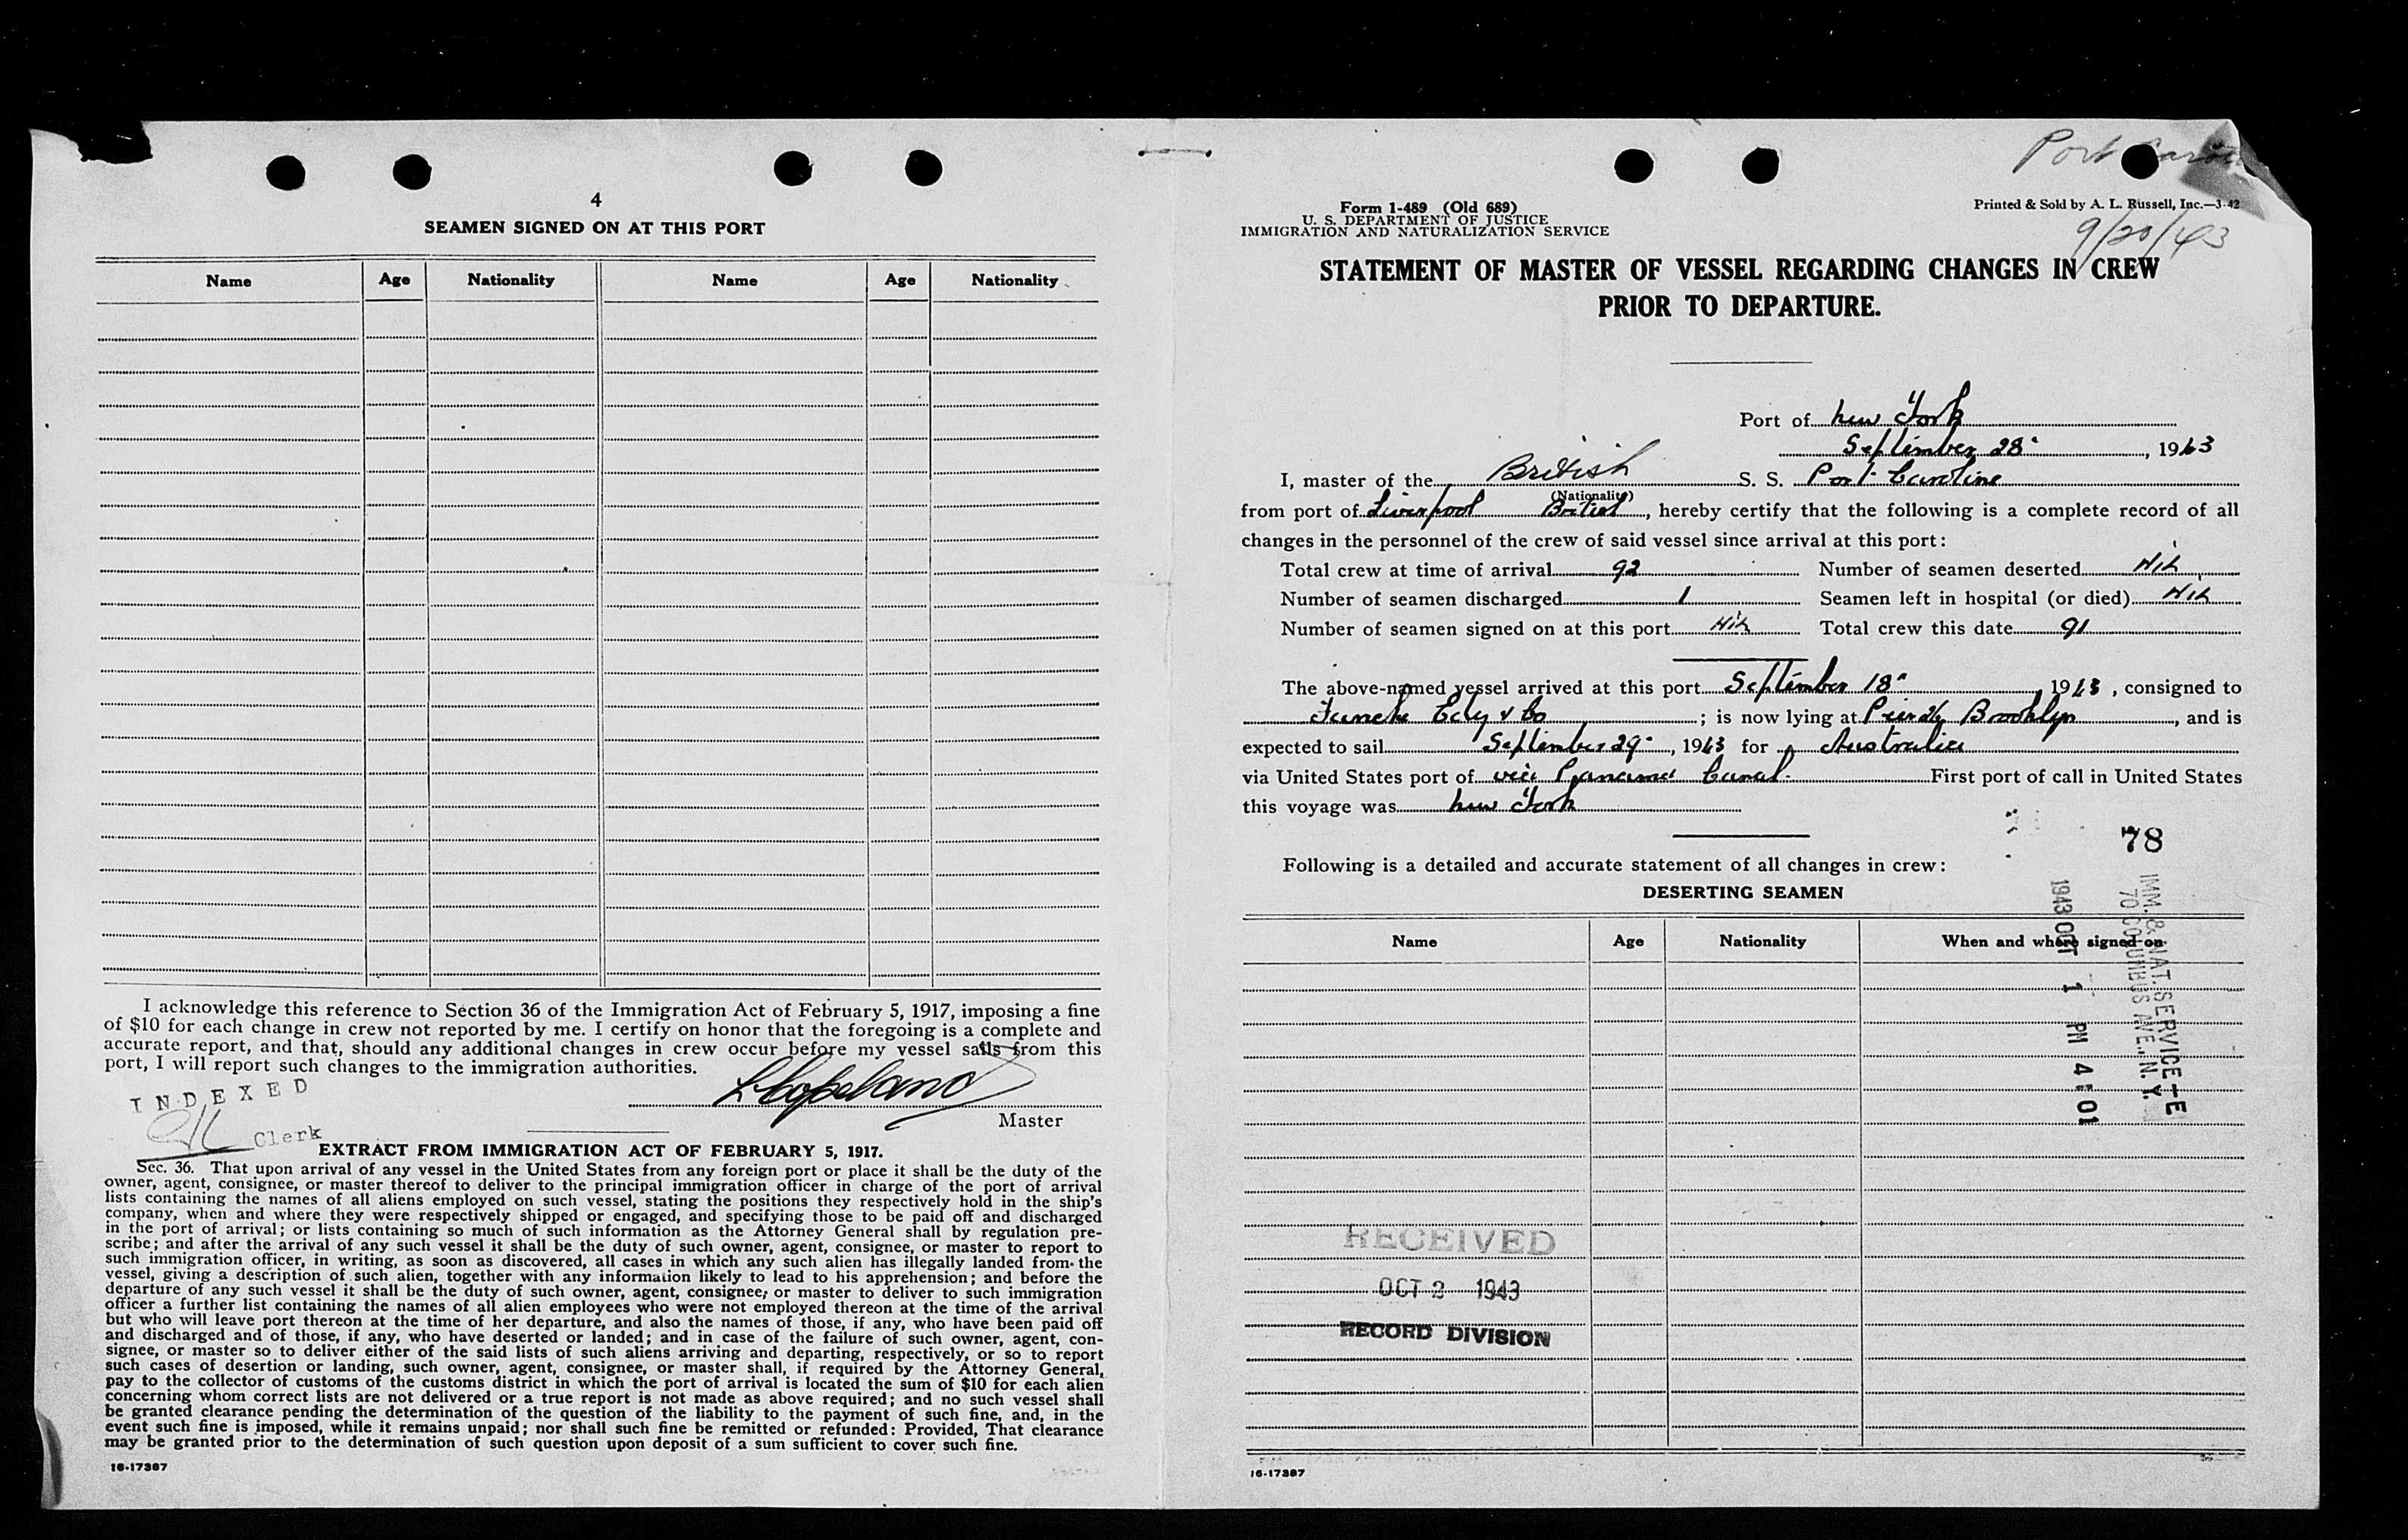 4
SEAMEN SIGNED ON AT THIS PORT
Name Age Nationality Name Age Nationality
I acknowledge this reference to Section 36 of the Immigration Act of February 5, 1917, imposing a fine
of $10 for each change in crew not reported by me. I certify on honor that the foregoing is a complete and
accurate report, and that, should any additional changes in crew occur before my vessel sails from this
port, I will report such changes to the immigration authorities.
INDEXED
Clerk
Copeland
Master
EXTRACT FROM IMMIGRATION ACT OF FEBRUARY 5, 1917.
Sec. 36. That upon arrival of any vessel in the United States from any foreign port or place it shall be the duty of the
owner, agent, consignee, or master thereof to deliver to the principal immigration officer in charge of the port of arrival
lists containing the names of all aliens employed on such vessel, stating the positions they respectively hold in the ship's
company, when and where they were respectively shipped or engaged, and specifying those to be paid off and discharged
in the port of arrival; or lists containing so much of such information as the Attorney General shall by regulation pre-
scribe; and after the arrival of any such vessel it shall be the duty of such owner, agent, consignee, or master to report to
such immigration officer, in writing, as soon as discovered, all cases in which any such alien has illegally landed from the
vessel, giving a description of such alien, together with any information likely to lead to his apprehension; and before the
departure of any such vessel it shall be the duty of such owner, agent, consignee, or master to deliver to such immigration
officer a further list containing the names of all alien employees who were not employed thereon at the time of the arrival
but who will leave port thereon at the time of her departure, and also the names of those, if any, who have been paid off
and discharged and of those, if any, who have deserted or landed; and in case of the failure of such owner, agent, con-
signee, or master so to deliver either of the said lists of such aliens arriving and departing, respectively, or so to report
such cases of desertion or landing, such owner, agent, consignee, or master shall, if required by the Attorney General,
pay to the collector of customs of the customs district in which the port of arrival is located the sum of $10 for each alien
concerning whom correct lists are not delivered or a true report is not made as above required; and no such vessel shall
be granted clearance pending the determination of the question of the liability to the payment of such fine, and, in the
event such fine is imposed, while it remains unpaid; nor shall such fine be remitted or refunded: Provided, That clearance
may be granted prior to the determination of such question upon deposit of a sum sufficient to cover such fine.
16-17387
Port
Form 1-489 (Old 689)
U. S. DEPARTMENT OF JUSTICE
IMMIGRATION AND NATURALIZATION SERVICE
Printed & Sold by A. L. Russell, Inc.—3-42
9/20/43
STATEMENT OF MASTER OF VESSEL REGARDING CHANGES IN CREW
PRIOR TO DEPARTURE.
Port of New York
September 28, 1943
I, master of the British S. S. Port Caroline
(Nationality)
from port of Liverpool British, hereby certify that the following is a complete record of all
changes in the personnel of the crew of said vessel since arrival at this port:
Total crew at time of arrival 92 Number of seamen deserted Nil
Number of seamen discharged 1 Seamen left in hospital (or died) Nil
Number of seamen signed on at this port Nil Total crew this date 91
The above-named vessel arrived at this port September 18, 1943, consigned to
Funch Edy & Co; is now lying at Pier 26 Brooklyn, and is
expected to sail September 29, 1943 for Australia
via United States port of via Panama Canal. First port of call in United States
this voyage was New York
78
Following is a detailed and accurate statement of all changes in crew:
DESERTING SEAMEN
Name Age Nationality When and where signed on
IMM. & NAT. SERVICE-E
70 COLUMBUS AVE., N. Y.
1943 OCT 1 PM 4 01
RECEIVED
OCT 2 1943
RECORD DIVISION
16-17387